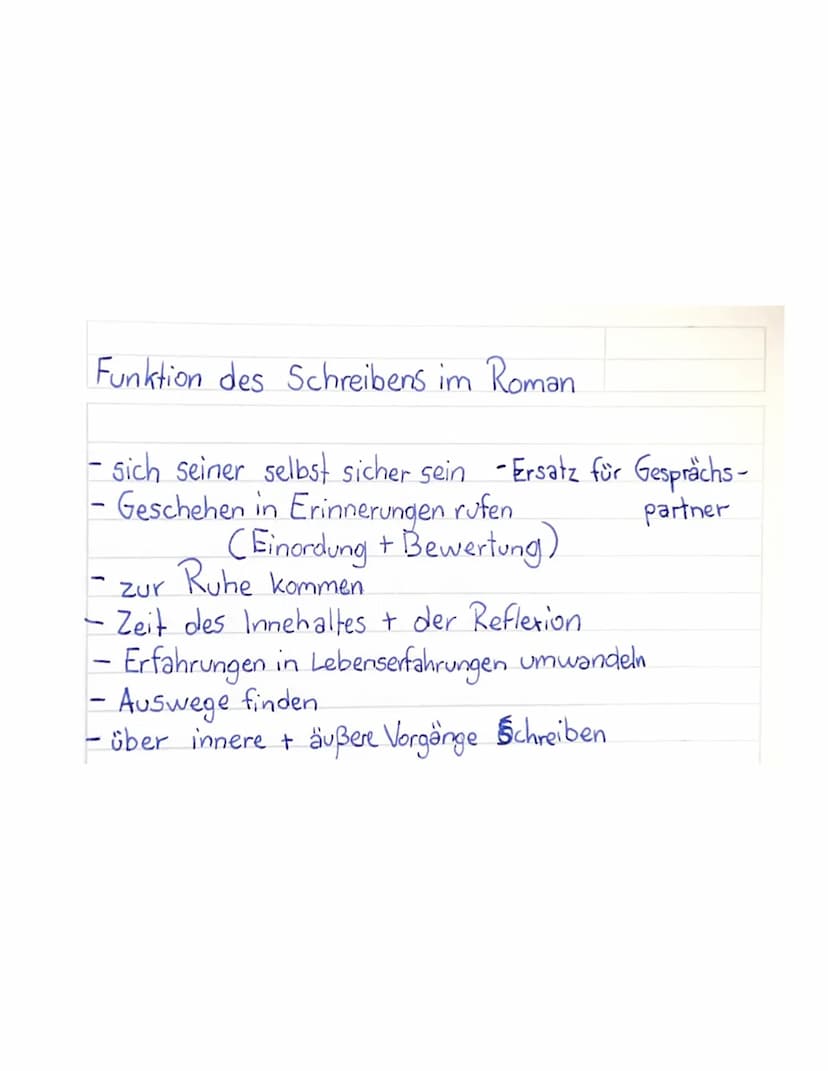 Funktion des Schreibens im Roman
- sich seiner selbst sicher sein - Ersatz für Gesprächs-
partner
- Geschehen in Erinnerungen rufen
(Einordung + Bewertung)
- zur Ruhe kommen
- Zeit des Innehaltes + der Reflexion
- Erfahrungen in Lebenserfahrungen umwandeln
- Auswege finden
- über innere + äußere Vorgänge Schreiben